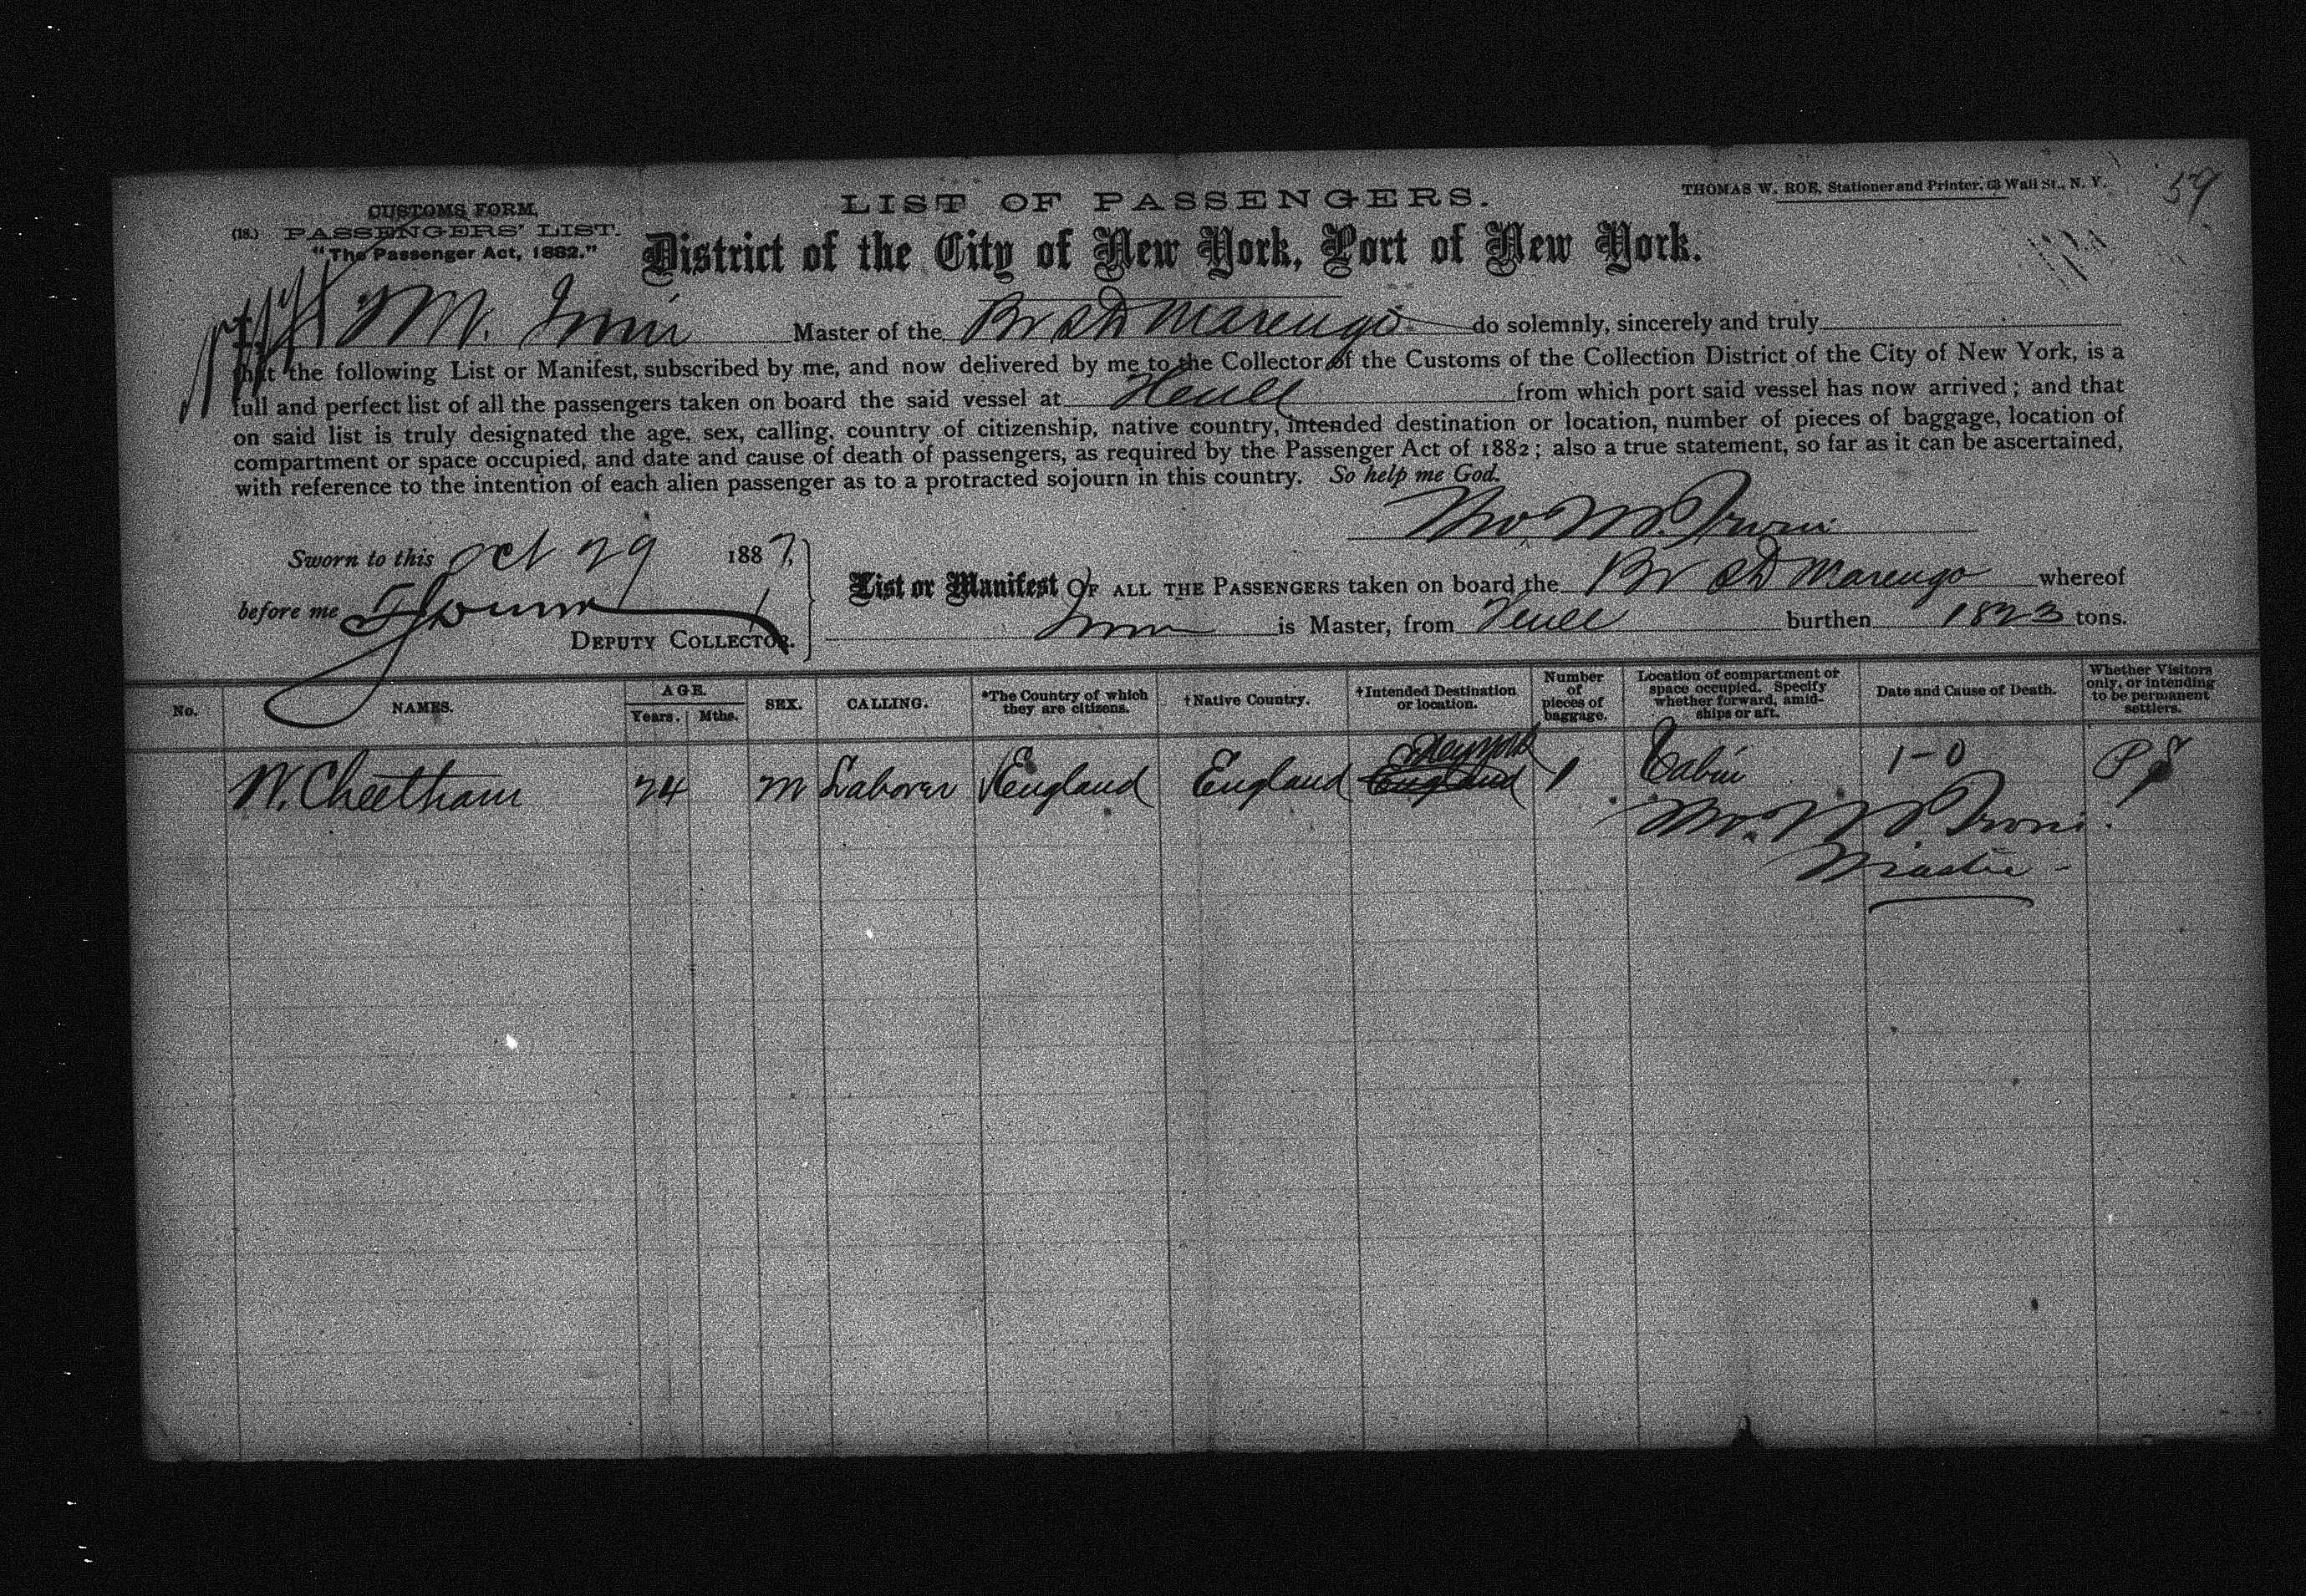 CUSTOMS FORM.
(18.) PASSENGERS' LIST.
"The Passenger Act, 1882."
LIST OF PASSENGERS.
THOMAS W. ROE, Stationer and Printer, 63 Wall St., N. Y.
59
District of the City of New York, Port of New York.
I, M. Irwin Master of the Br SS Marengo do solemnly, sincerely and truly
that the following List or Manifest, subscribed by me, and now delivered by me to the Collector of the Customs of the Collection District of the City of New York, is a
full and perfect list of all the passengers taken on board the said vessel at Hull from which port said vessel has now arrived; and that
on said list is truly designated the age, sex, calling, country of citizenship, native country, intended destination or location, number of pieces of baggage, location of
compartment or space occupied, and date and cause of death of passengers, as required by the Passenger Act of 1882; also a true statement, so far as it can be ascertained,
with reference to the intention of each alien passenger as to a protracted sojourn in this country. So help me God.
Tho. M. Irwin
Sworn to this Oct 29 1887,
before me
DEPUTY COLLECTOR.
List or Manifest OF ALL THE PASSENGERS taken on board the Br SS Marengo whereof
Irwin is Master, from Hull burthen 1823 tons.
No. NAMES. AGE. Years. Mths. SEX. CALLING. *The Country of which they are citizens. †Native Country. †Intended Destination or location. Number of pieces of baggage. Location of compartment or space occupied. Specify whether forward, amidships or aft. Date and Cause of Death. Whether Visitors only, or intending to be permanent settlers.
New York
W. Cheetham 24 M Laborer England England England 1 Cabin 1-0 P S
Tho. M Irwin
Master